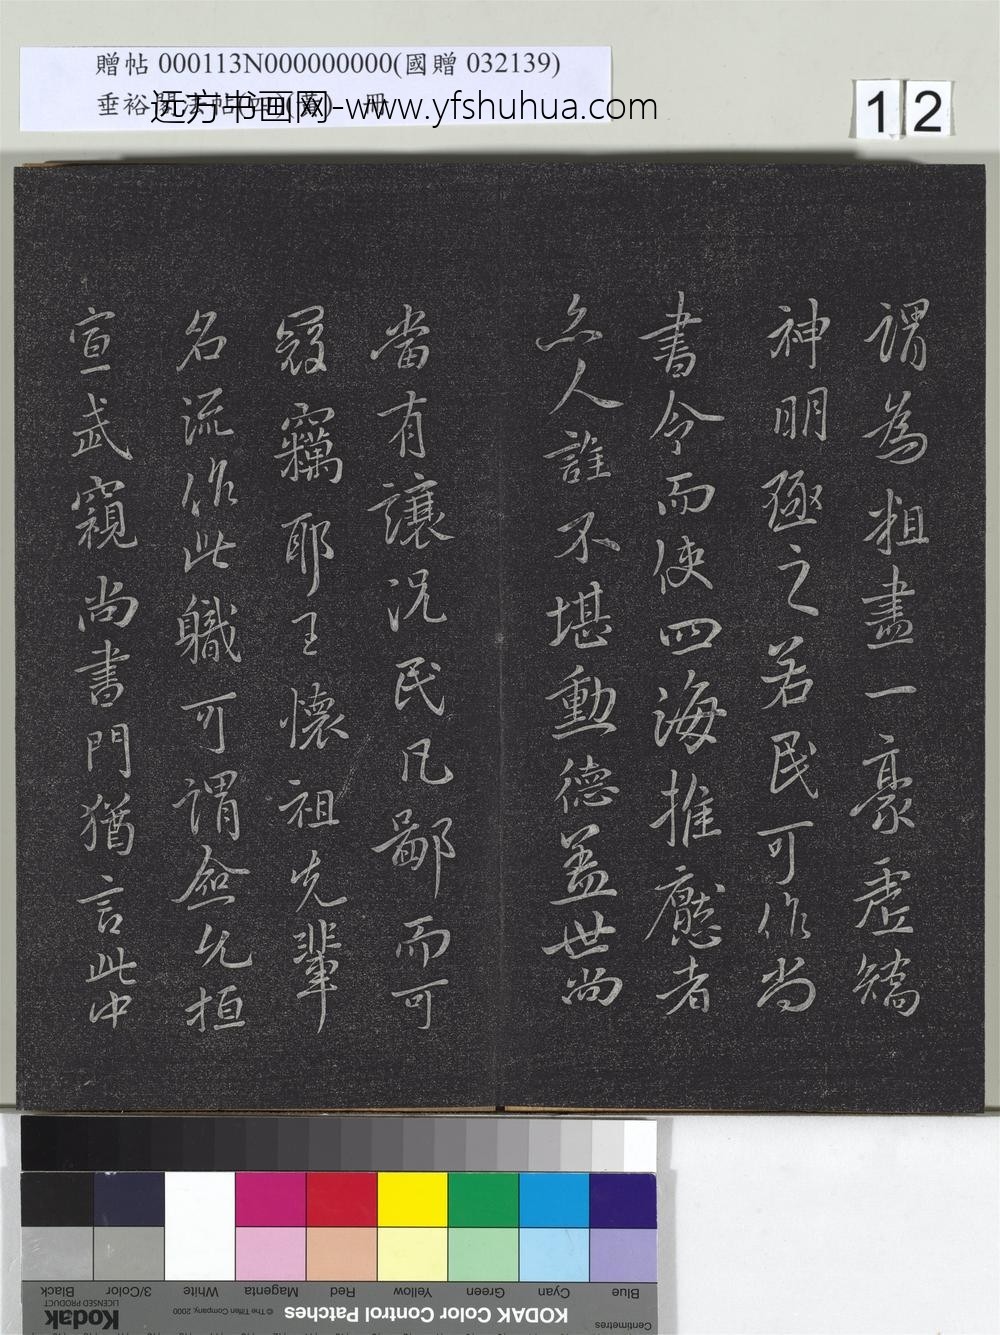 贈帖 000113N000000000(國贈 032139)
垂裕閣法帖 冊
远方书画网-www.yfshuhua.com
12
謂為粗盡一豪虛矯
神明殛之若民可作尚
書令而使四海推懸者
亦人誰不堪勳德蓋世尚
當有讓況民凡鄙而可
冠竊耶王懷祖先輩
名流作此職可謂僉允桓
宣武窺尚書門猶言此中
Blue Cyan Green Yellow Red Magenta White 3/Color Black
KODAK Color Control Patches
© The Tiffen Company, 2000
Kodak
LICENSED PRODUCT
Centimetres